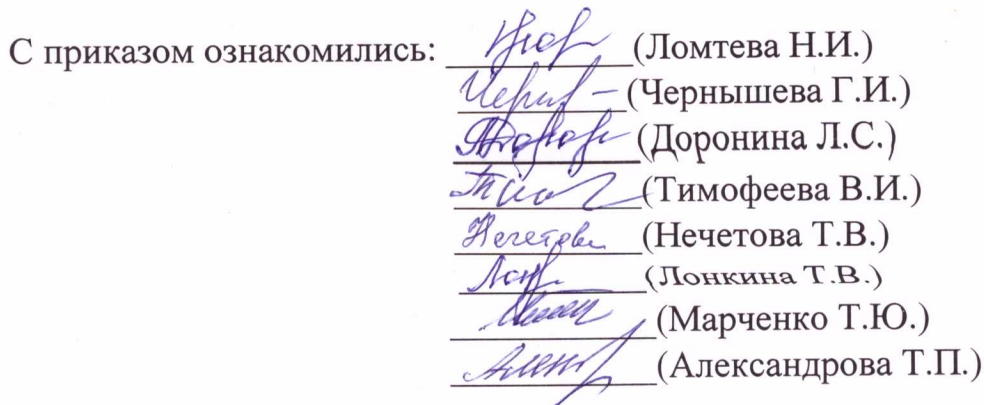 С приказом ознакомились: (Ломтева Н.И.)
(Чернышева Г.И.)
(Доронина Л.С.)
(Тимофеева В.И.)
Нечетова (Нечетова Т.В.)
(Лонкина Т.В.)
(Марченко Т.Ю.)
(Александрова Т.П.)